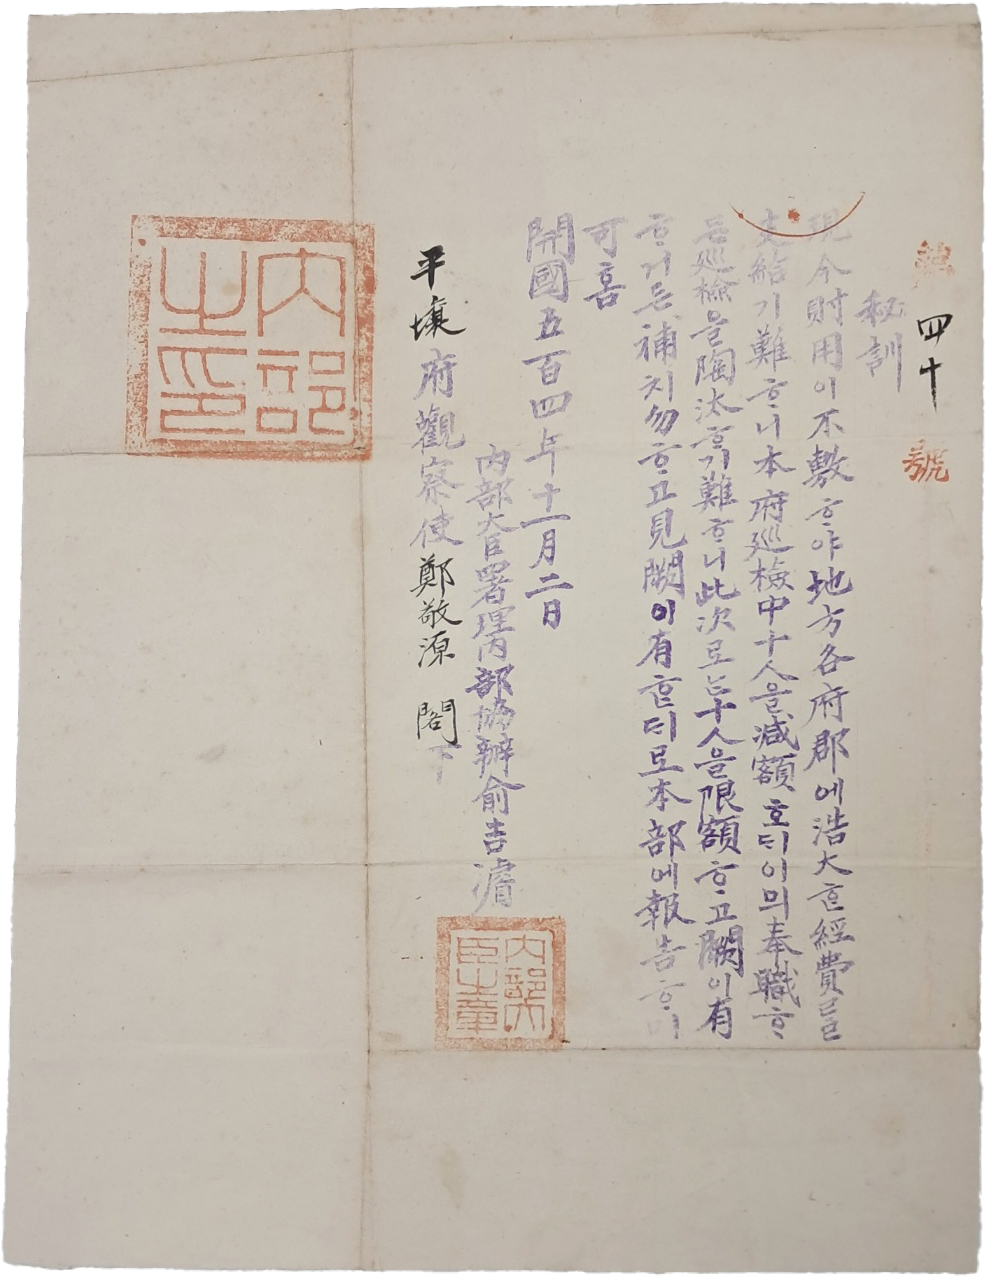 第四十號
秘訓
現今財用이不敷ᄒᆞ야地方各府郡에浩大ᄒᆞᆫ經費를
支給기難ᄒᆞ니本府廵檢中十人을減額호ᄃᆡ이믜奉職ᄒᆞ
ᄂᆞᆫ廵檢을陶汰ᄒᆞ기難ᄒᆞ니此次로ᄂᆞᆫ十人을限額ᄒᆞ고闕이有
ᄒᆞ거든補치勿ᄒᆞ고見闕이有ᄒᆞᆫᄃᆡ로本部에報告ᄒᆞ미
可홈
開國五百四年十一月二日
內部大臣署理內部協辦兪吉濬
內部大臣之章
平壤府觀察使鄭敬源 閣下
內部之印